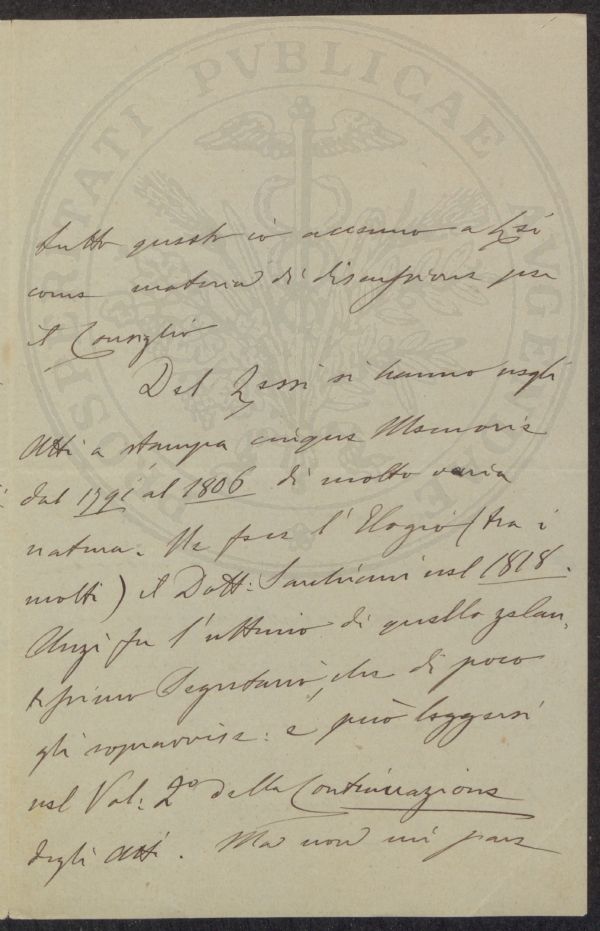 PROSPERITATI PVBLICAE AVGENDAE
tutto questo io accenno a Lei
come materia di discussione per
il Consiglio
Del Zessi si hanno negli
Atti a stampa cinque Memorie
dal 1791 al 1806 di molto varia
natura. Ne fece l'Elogio (tra i
molti) il Dott: Sarchiani nel 1818.
Anzi fu l'ultimo di quello zelan-
tissimo Segretario, che di poco
gli sopravvisse: e può leggersi
nel Vol: 2º della Continuazione
degli Atti. Ma non mi pare